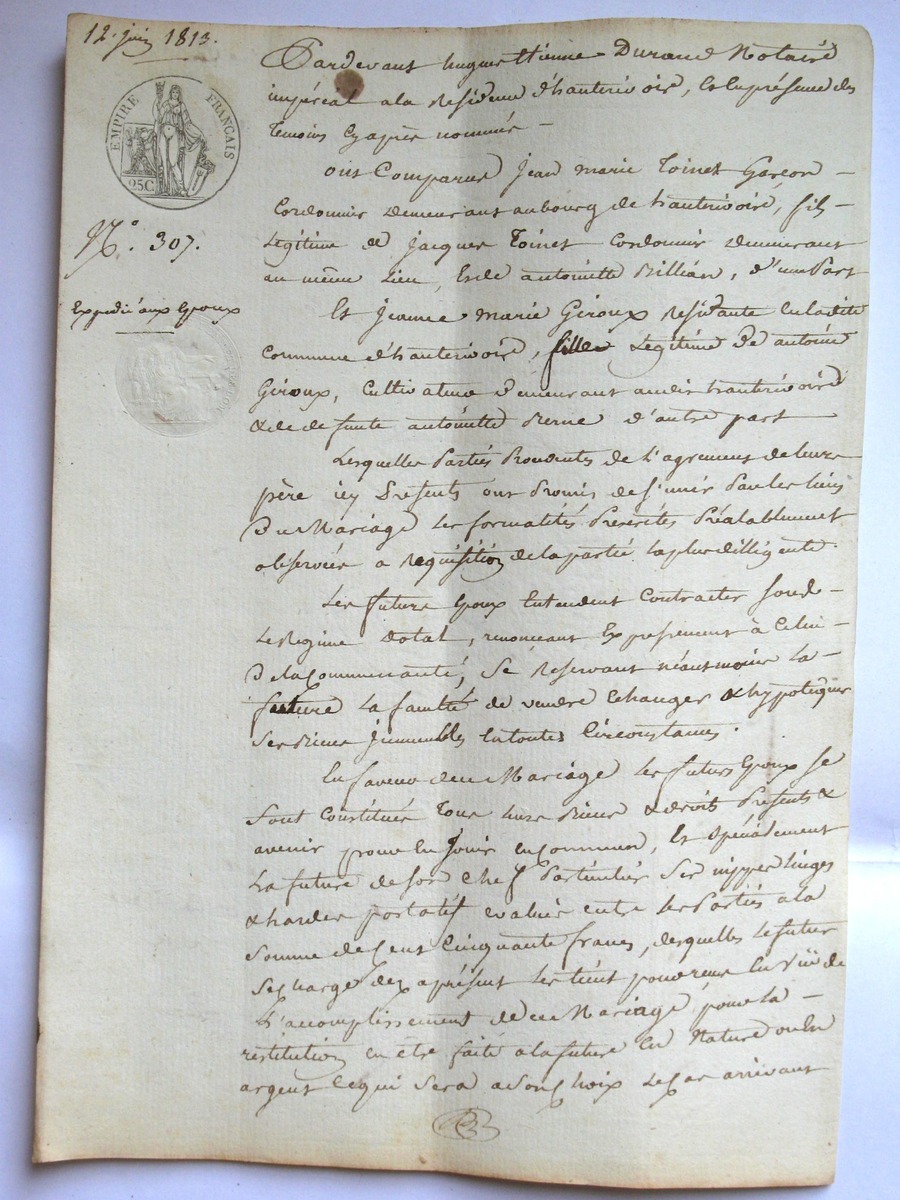 12. juin 1813.
EMPIRE FRANÇAIS
25C
N.° 307.
Expedié aux Epoux
Pardevant hugues Etienne Durand Notaire
impérial a la Residence d'hauterivoire, et en présence des
temoins cy après nommés —
ont Comparus Jean marie Toinet Garçon —
Cordonnier demeurant au bourg de hauterivoire, fils —
Legitime de Jacques Toinet Cordonnier demeurant
au même Lieu, et de antoinette Billiard, d'une Part
Et Jeanne marie Giroux Residante en ladite
Commune d'hauterivoire, fille Legitime de antoine
Giroux, Cultivateur demeurant audit hauterivoire
& de defunte antoinette d'autre part
Lesquelles Parties Procedentes de l'agrement de leurs
père icy Presents ont Promis de s'unir Par les liens
Du Mariage les formalités Prescrites Préalablement
observées a requisition de la partie la plus dilligente.
Les futurs Epoux Entendent Contracter sous —
Le Regime dotal, renonçant Expressement à Celui —
De la Communauté, se Reservant néantmoins la —
future la faculté de vendre Echanger & hypotéquer
Ses Biens Immeubles en toutes Circonstances.
En faveur du Mariage les futurs Epoux se
Sont Constitués Tous leurs Biens & droits Presents &
avenir pour en Jouir en commun, Et Spécialement
La future de son Chef Particulier Ses nippes linges
& hardes portatif evalués entre les Parties a la
Somme de Cent Cinquante francs, desquelles le futur
Se charge dès aprésent les tient pour reçus En vüe de
L'accomplissement de ce Mariage, pour la —
restitution en être faite a la future en Nature ou En
argent Ce qui sera a son Choix Le Cas arrivant